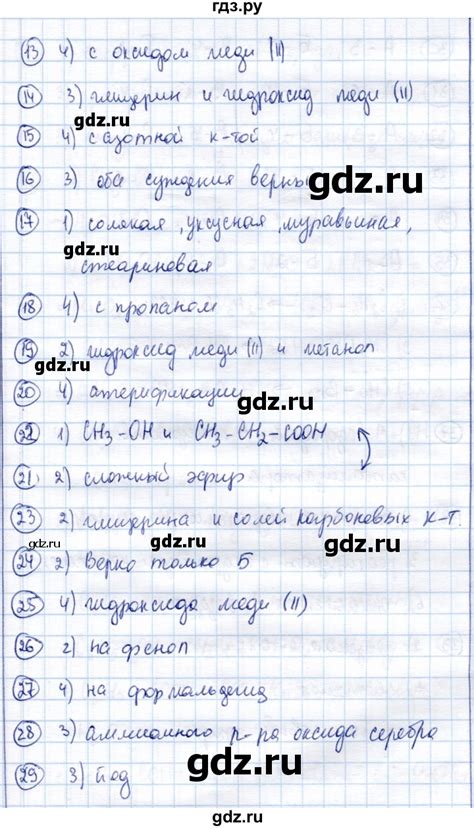 гдз.ру
13 4) с оксидом меди (II)
14 3) глицерин и гидроксид меди (II)
15 4) с азотной к-той
16 3) оба суждения верны
gdz.ru
17 1) соляная, уксусная, муравьиная,
gdz.ru
стеариновая
18 4) с пропаном
gdz.ru
19 2) гидроксид меди (II) и метанол
gdz.ru
20 4) этерификации
gdz.ru
22 1) CH3-OH и CH3-CH2-COOH
21 2) сложный эфир
gdz.ru
23 2) глицерина и солей карбоновых к-т.
gdz.ru
gdz.ru
24 2) Верно только Б
25 4) гидроксида меди (II)
gdz.ru
26 2) на фенол
gdz.ru
27 4) на формальдегид
gdz.ru
28 3) аммиачного р-ра оксида серебра
29 3) йод
gdz.ru
gdz.ru